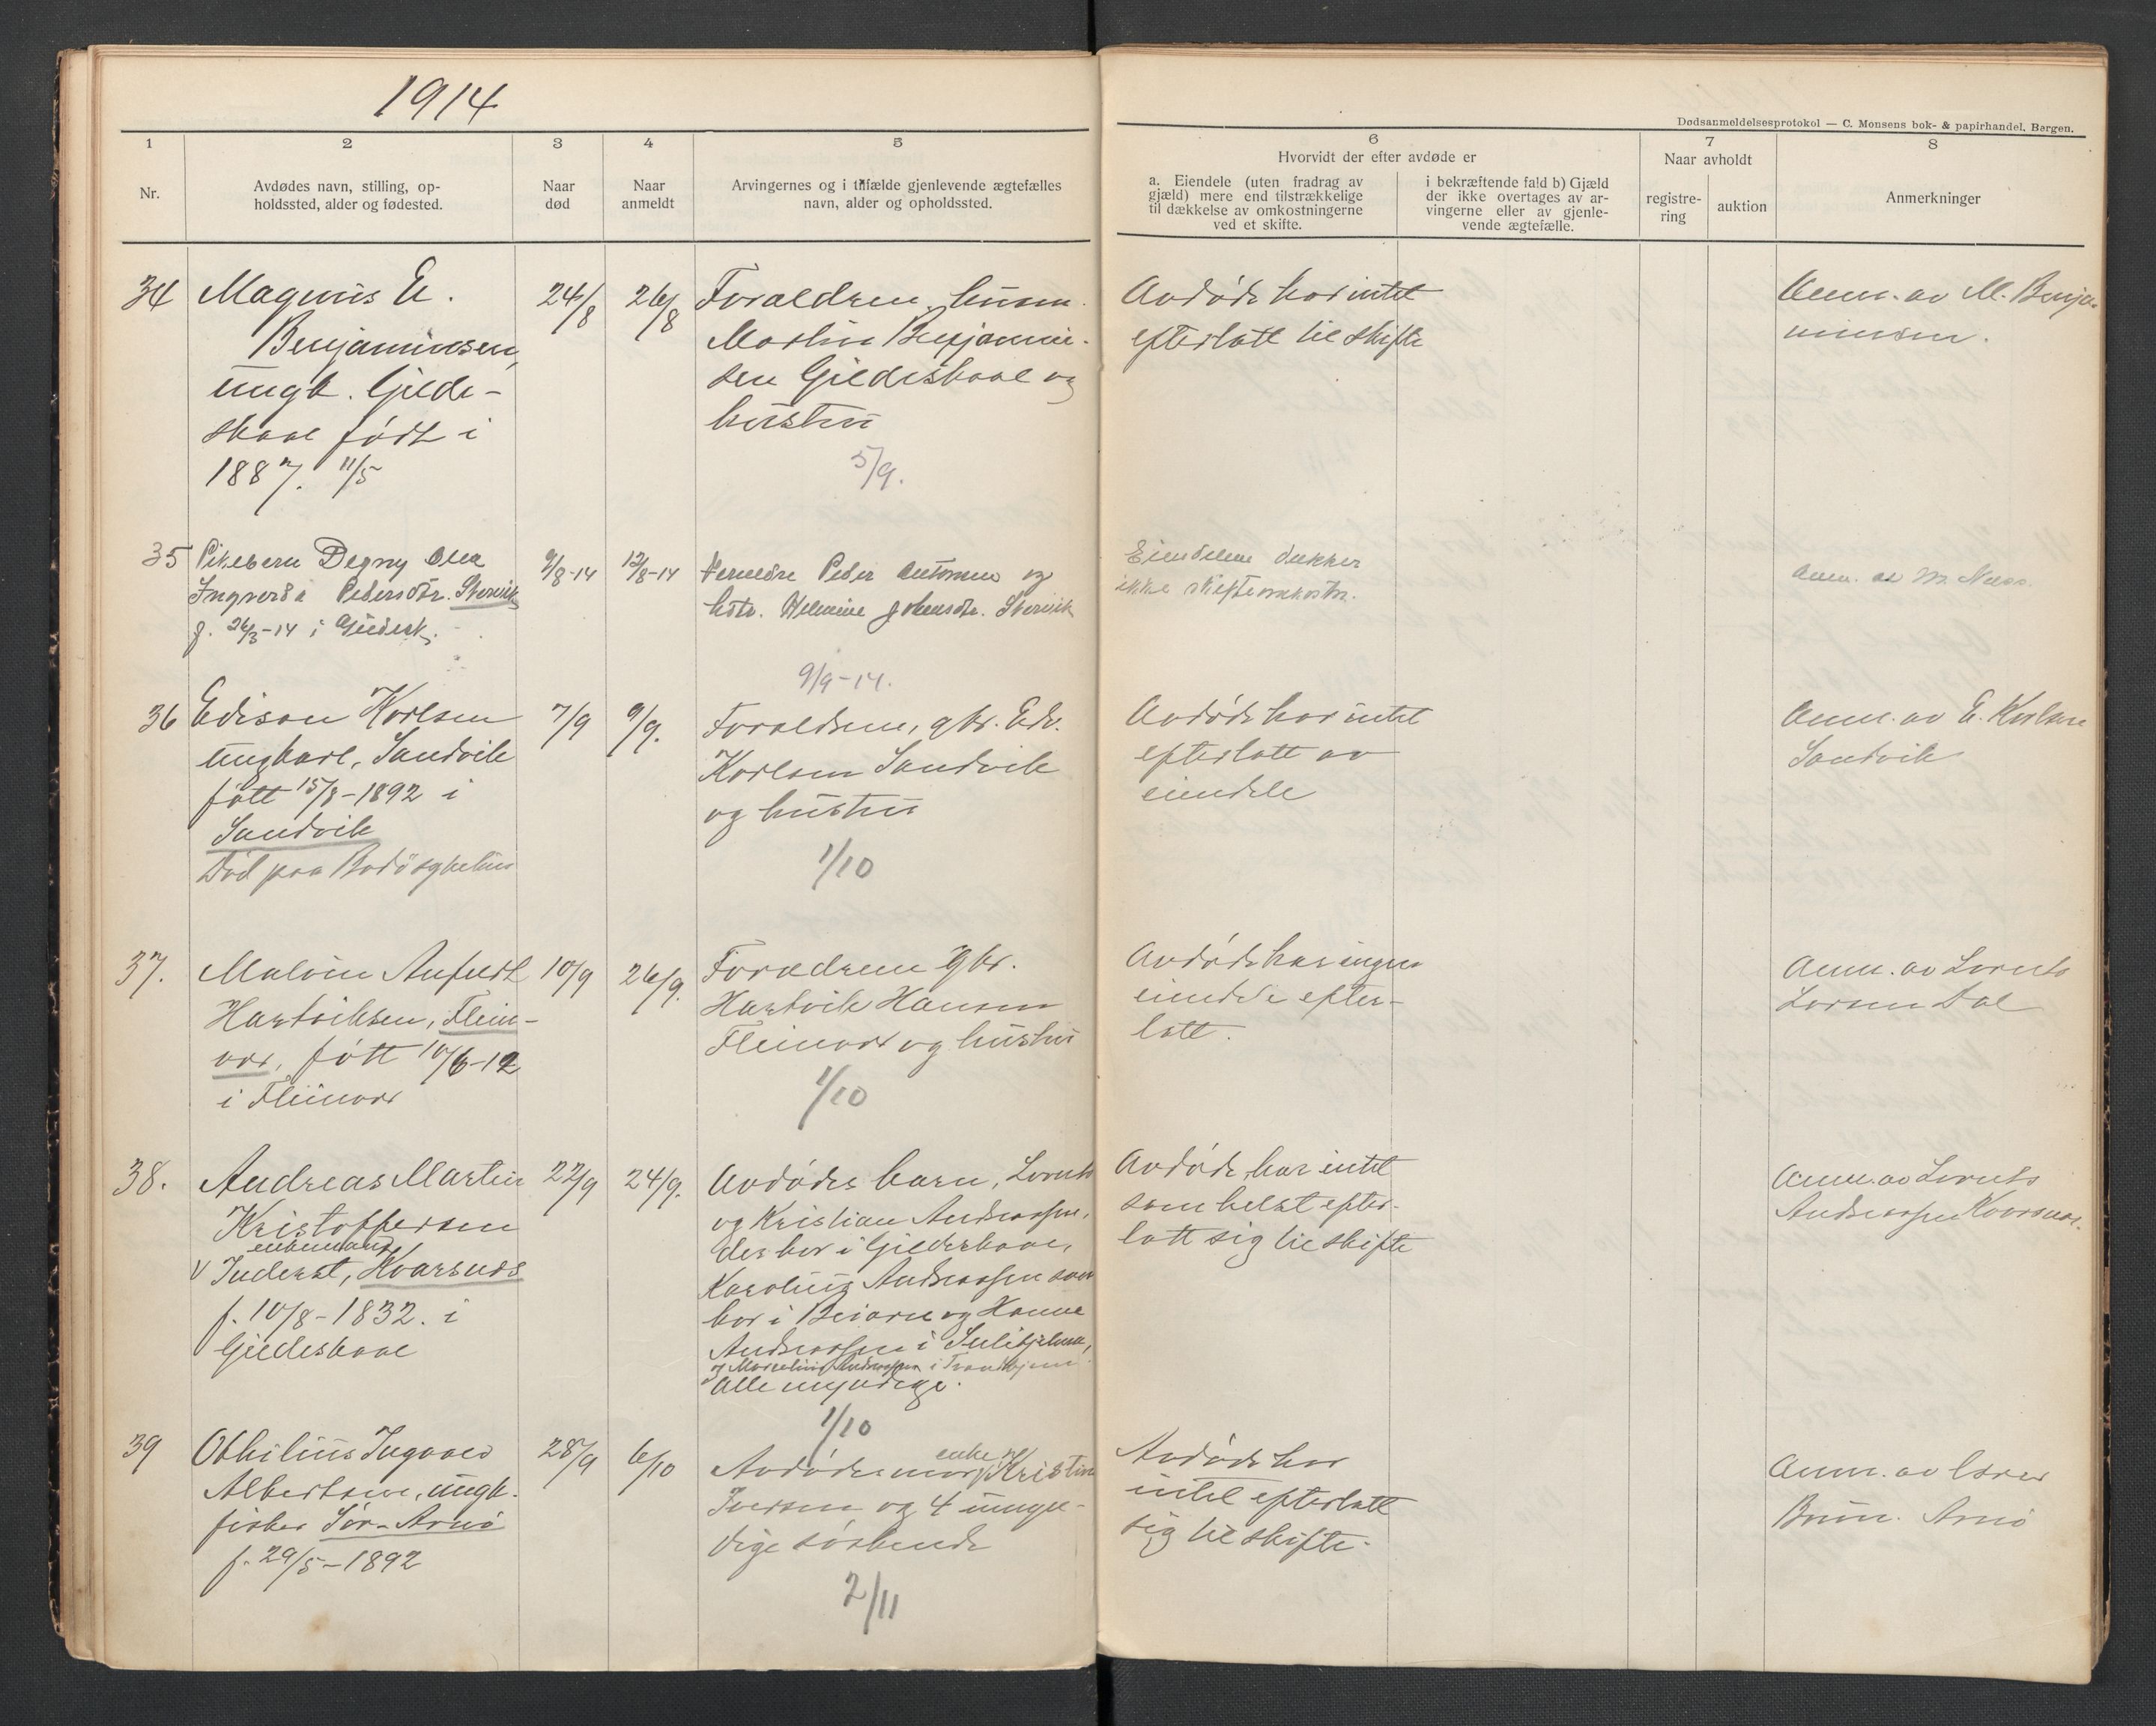 1914
Dødsanmeldelsesprotokol — C. Monsens bok- & papirhandel, Bergen.
1 2 3 4 5 6 7 8
Nr.
Avdødes navn, stilling, op-
holdssted, alder og fødested.
Naar
død
Naar
anmeldt
Arvingernes og i tilfælde gjenlevende ægtefælles
navn, alder og opholdssted.
Hvorvidt der efter avdøde er
a. Eiendele (uten fradrag av
gjæld) mere end tilstrækkelige
til dækkelse av omkostningerne
ved et skifte.
i bekræftende fald b) Gjæld
der ikke overtages av ar-
vingerne eller av gjenle-
vende ægtefælle.
Naar avholdt
registre-
ring
auktion
Anmerkninger
34
Magnus E.
Benjaminsen,
ungk. Gilde-
skaal født i
1887. 11/5
24/8
26/8
Foraldren, husm.
Martin Benjamin-
sen Gildeskaal og
hustru
5/9.
Avdøde har intet
efterlatt til skifte
Anm. av M. Benja-
minsen.
35
Pikebarn Dagny Olea
Ingverda Pedersdtr. Storvik
f. 26/3-14 i Gildesk.
9/8-14
12/8-14
Foreldre Peder Antonsen og
hstr. Helmine Johnsdtr. Storvik
9/9-14.
Eiendelene dækker
ikke skifteomkostn.
Anm. av M. Næss.
36
Edison Karlsen
ungkarl, Sandvik
født 15/8-1892 i
Sandvik
Död paa Bodö sykehus
7/9
9/9.
Foraldrene, gbr. Edv.
Karlsen Sandvik
og hustru
1/10
Avdøde har intet
efterlatt av
eiendele
Anm. av E. Karlsen
Sandvik
37.
Malvin Anfeldt
Hartviksen, Flein-
vær, født 10/6-12
i Fleinvær
10/9
26/9.
Forældrene gbr.
Hartvik Hansen
Fleinvær og hustru
1/10
Avdøde har ingen
eiendele efter-
latt.
Anm. av Lornts
Larsen Dal
38.
Andreas Martin
Kristoffersen
enkemand
V Inderst, Kvarsnes
f. 10/8-1832. i
Gildeskaal
22/9
24/9.
Avdødes barn, Lornts
og Kristian Andreassen,
der bor i Gildeskaal,
Karolius Andreassen som
bor i Beiarn og Hanna
Andreassen i Sulitjelma,
og Marselius Andreassen i Trondhjem
Alle myndige.
1/10
Avdøde har intet
som helst efter-
latt sig til skifte
Anm. av Lornts
Andreassen Kvarsnes.
39
Othilius Ingvald
Albertsen, ungk.
fisker Sør-Arnö
f. 29/5-1892
28/9
6/10
Avdødes mor, enke Kristine
Iversen og 4 umyn-
dige søskende
2/11
Avdøde har
intet efterlatt
sig til skifte.
Anm. av
Brun. Arnö